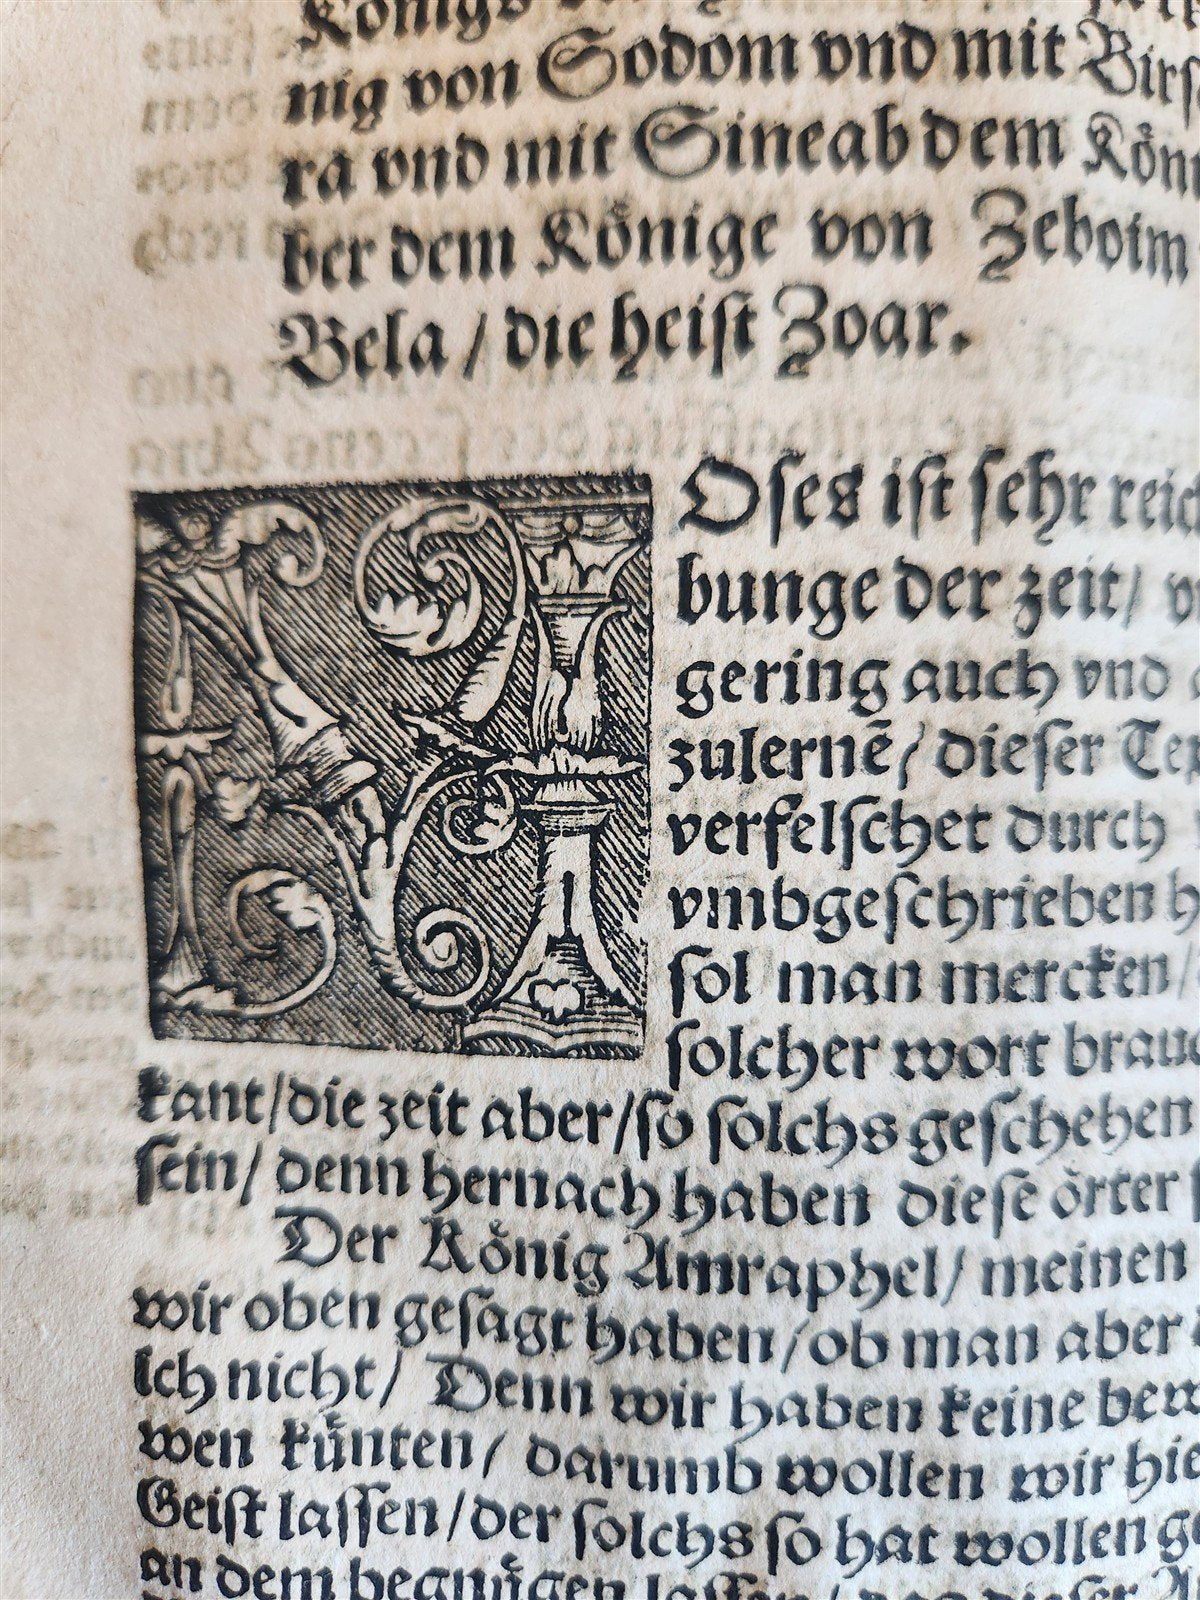 Königs
nig von Sodom vnd mit Birs
ra vnd mit Sineab dem Kön
ber dem Könige von Zeboim
Bela / die heist Zoar.
MOses ist sehr reic
bunge der zeit/ v
gering auch vnd
zulernẽ/ dieser Tex
verfelschet durch
vmbgeschrieben h
sol man mercken/
solcher wort brauc
kant/die zeit aber/so solchs geschehen
sein/ denn hernach haben diese örter
Der König Amraphel/ meinen
wir oben gesagt haben/ob man aber
Ich nicht/ Denn wir haben keine bew
wen künten/ darumb wollen wir hie
Geist lassen/der solchs so hat wollen g
an dem begnügen lassen/ dieser